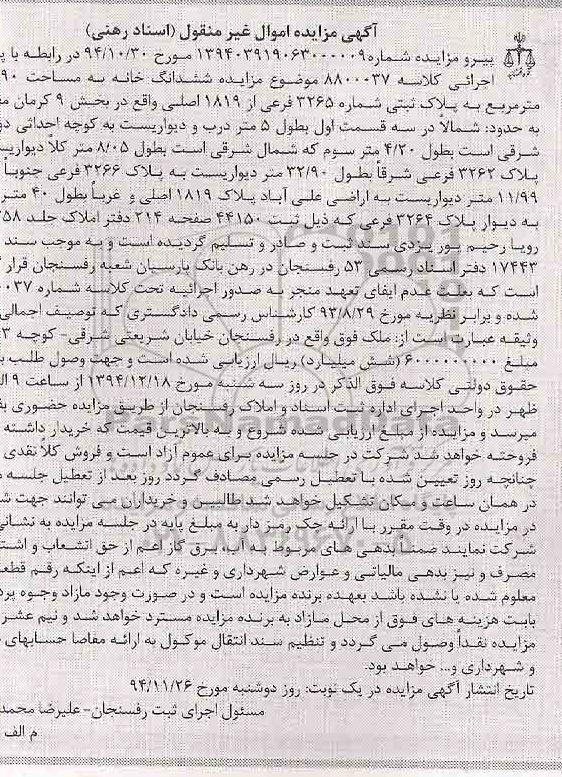 آگهی مزایده اموال غیر منقول (اسناد رهنی)
پیرو مزایده شماره ۱۳۹۴۰۳۹۱۹۰۶۳۰۰۰۰۰۹ مورخ ۹۴/۱۰/۳۰ در رابطه با
اجرائی کلاسه ۸۸۰۰۰۳۷ موضوع مزایده ششدانگ خانه به مساحت ۹۰
مترمربع به پلاک ثبتی شماره ۳۲۶۵ فرعی از ۱۸۱۹ اصلی واقع در بخش ۹ کرمان
به حدود: شمالاً در سه قسمت اول بطول ۵ متر درب و دیواریست به کوچه احداثی
شرقی است بطول ۴/۲۰ متر سوم که شمال شرقی است بطول ۸/۰۵ متر کلاً
پلاک ۳۲۶۲ فرعی شرقاً بطول ۳۲/۹۰ متر دیواریست به پلاک ۳۲۶۶ فرعی جنوباً
۱۱/۹۹ متر دیواریست به اراضی علی آباد پلاک ۱۸۱۹ اصلی و غرباً بطول ۴۰ متر
به دیوار پلاک ۳۲۶۴ فرعی که ذیل ثبت ۴۴۱۵۰ صفحه ۲۱۴ دفتر املاک جلد ۲۵۸
رویا رحیم پور یزدی سند ثبت و صادر و تسلیم گردیده است و به موجب سند
۱۷۴۴۳ دفتر اسناد رسمی ۵۳ رفسنجان در رهن بانک پارسیان شعبه رفسنجان قرار
است که بعلت عدم ایفای تعهد منجر به صدور اجرائیه تحت کلاسه شماره ۰۰۳۷
شده و برابر نظریه مورخ ۹۳/۸/۲۹ کارشناس رسمی دادگستری که توصیف اجمالی
وثیقه عبارت است از: ملک فوق واقع در رفسنجان خیابان شریعتی شرقی- کوچه ۳
مبلغ ۶۰۰۰۰۰۰۰۰۰ (شش میلیارد) ریال ارزیابی شده است و جهت وصول طلب
حقوق دولتی کلاسه فوق الذکر در روز سه شنبه مورخ ۱۳۹۴/۱۲/۱۸ از ساعت ۹ الی
ظهر در واحد اجرای اداره ثبت اسناد و املاک رفسنجان از طریق مزایده حضوری
میرسد و مزایده از مبلغ ارزیابی شده شروع و به بالاترین قیمت که خریدار داشته
فروخته خواهد شد شرکت در جلسه مزایده برای عموم آزاد است و فروش کلاً نقدی
چنانچه روز تعیین شده با تعطیل رسمی مصادف گردد روز بعد از تعطیل جلسه
در همان ساعت و مکان تشکیل خواهد شد طالبین و خریداران می توانند جهت
در مزایده در وقت مقرر با ارائه چک رمز دار به مبلغ پایه در جلسه مزایده به نشانی
شرکت نمایند ضمناً بدهی های مربوط به آب، برق گاز اعم از حق انشعاب و
مصرف و نیز بدهی مالیاتی و عوارض شهرداری و غیره که اعم از اینکه رقم
معلوم شده یا نشده باشد بعهده برنده مزایده است و در صورت وجود مازاد وجوه
بابت هزینه های فوق از محل مازاد به برنده مزایده مسترد خواهد شد و نیم عشر
مزایده نقداً وصول می گردد و تنظیم سند انتقال موکول به ارائه مفاصا حسابهای
و شهرداری و... خواهد بود.
تاریخ انتشار آگهی مزایده در یک نوبت: روز دوشنبه مورخ ۹۴/۱۱/۲۶
مسئول اجرای ثبت رفسنجان- علیرضا
م الف
ParsNamadData